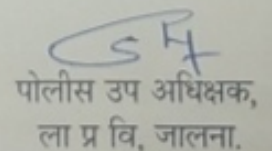 पोलीस उप अधिक्षक,
ला प्र वि, जालना.